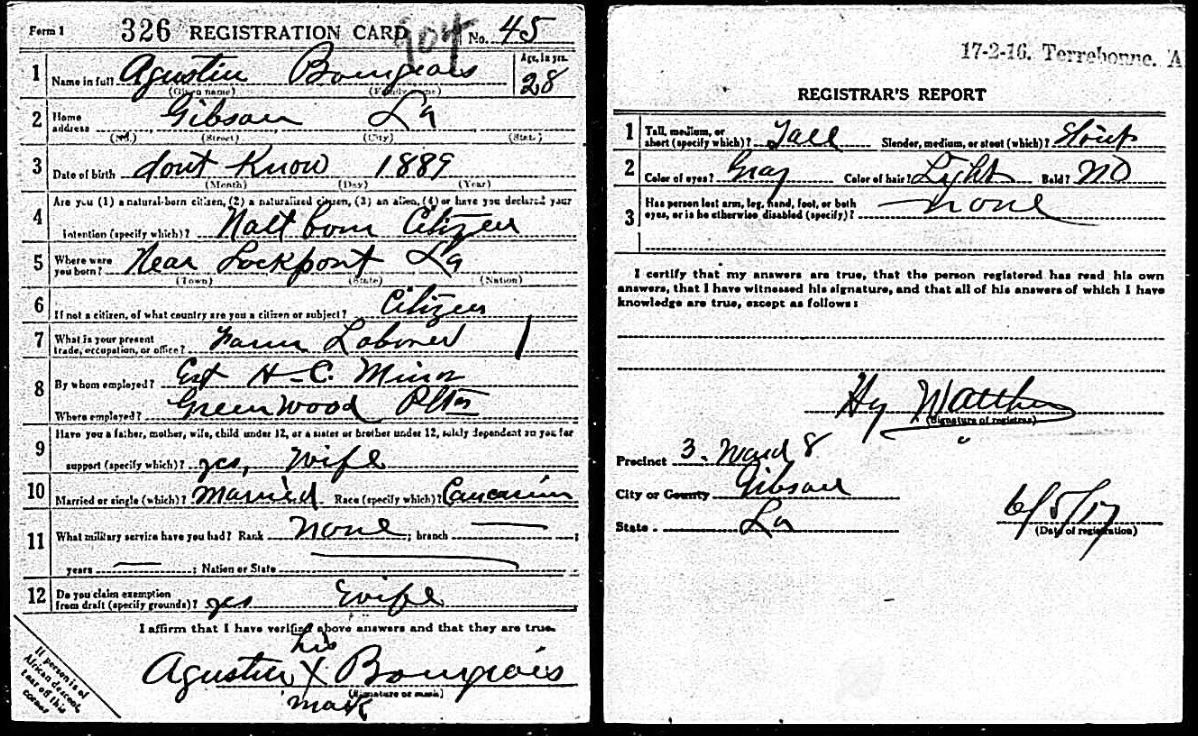 Form 1 326 REGISTRATION CARD 904 No. 45
1 Name in full Agustin Bourgeois Age, in yrs. 28
(Given name) (Family name)
2 Home address Gibson La
(No.) (Street) (City) (State)
3 Date of birth dont Know 1889
(Month) (Day) (Year)
4 Are you (1) a natural-born citizen, (2) a naturalized citizen, (3) an alien, (4) or have you declared your
intention (specify which)? Natl born Citizen
5 Where were you born? Near Lockport La
(Town) (State) (Nation)
6 If not a citizen, of what country are you a citizen or subject? Citizen
7 What is your present trade, occupation, or office? Farm Laborer
8 By whom employed? Est H-C. Minor
Where employed? Greenwood Pltn
9 Have you a father, mother, wife, child under 12, or a sister or brother under 12, solely dependent on you for
support (specify which)? yes, Wife
10 Married or single (which)? Married Race (specify which)? Caucasian
11 What military service have you had? Rank None ; branch — ;
years — ; Nation or State —
12 Do you claim exemption from draft (specify grounds)? yes Wife
I affirm that I have verified above answers and that they are true.
his
Agustin X Bourgeois
(Signature or mark)
mark
If person is of
African descent,
tear off this
corner
17-2-16. Terrebonne. A
REGISTRAR'S REPORT
1 Tall, medium, or short (specify which)? Tall Slender, medium, or stout (which)? Stout
2 Color of eyes? Gray Color of hair? Light Bald? NO
3 Has person lost arm, leg, hand, foot, or both eyes, or is he otherwise disabled (specify)? None
I certify that my answers are true, that the person registered has read his own
answers, that I have witnessed his signature, and that all of his answers of which I have
knowledge are true, except as follows:
Hy
(Signature of registrar)
Precinct 3. Ward 8
City or County Gibson
State. La
6/5/17
(Date of registration)